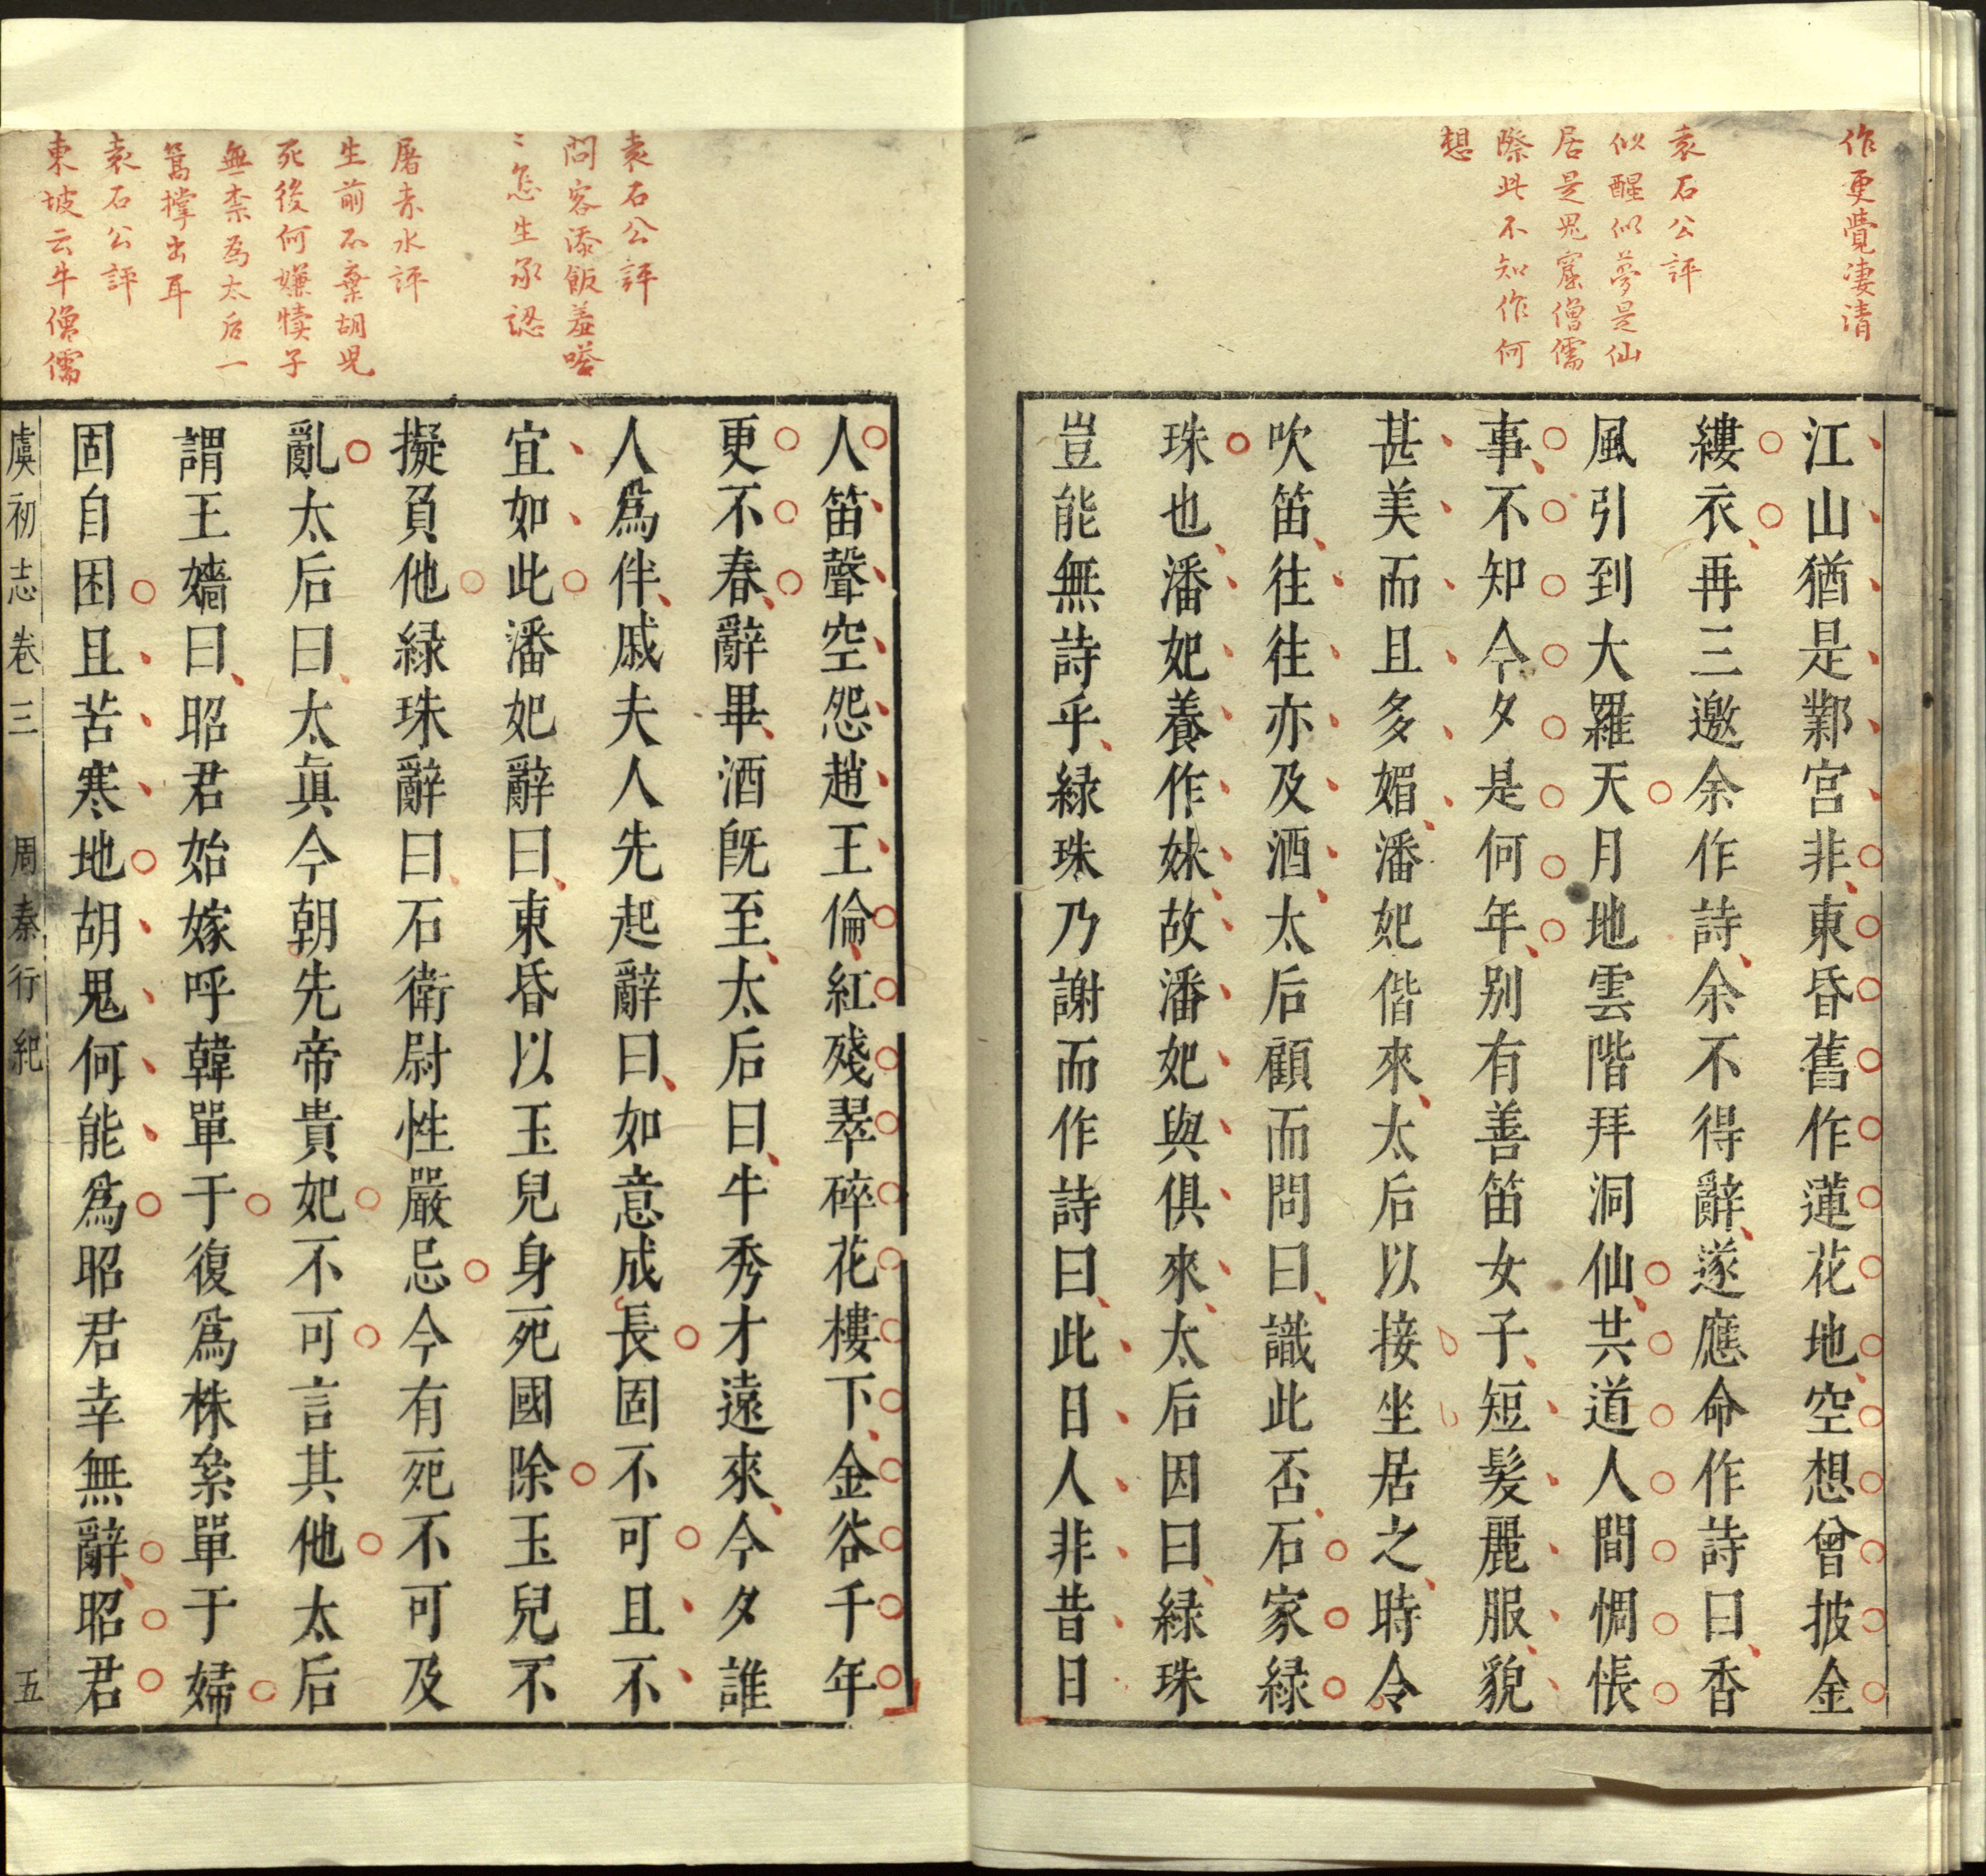 作更覺凄清
袁石公評
似醒似夢是仙
居是鬼窟僧儒
際此不知作何
想
江山猶是鄴宮非東昏舊作蓮花地空想曾披金
縷衣再三邀余作詩余不得辭遂應命作詩曰香
風引到大羅天月地雲階拜洞仙共道人間惆悵
事不知今夕是何年别有善笛女子短髮麗服貌
甚美而且多媚潘妃偕來太后以接坐居之時令
吹笛往往亦及酒太后顧而問曰識此否石家緑
珠也潘妃養作妹故潘妃與俱來太后因曰緑珠
豈能無詩乎緑珠乃謝而作詩曰此日人非昔日
袁石公評
問客添飯羞嗒
〻怎生承認
屠赤水評
生前不棄胡児
死後何嫌犢子
無柰爲太后一
篙撑出耳
袁石公評
東坡云牛僧儒
人笛聲空怨趙王倫紅殘翠碎花樓下金谷千年
更不春辭畢酒既至太后曰牛秀才遠來今夕誰
人爲伴戚夫人先起辭曰如意成長固不可且不
宜如此潘妃辭曰東昏以玉兒身死國除玉兒不
擬負他緑珠辭曰石衛尉性嚴忌今有死不可及
亂太后曰太真今朝先帝貴妃不可言其他太后
謂王嬙曰昭君始嫁呼韓單于復爲株絫單于婦
固自困且苦寒地胡鬼何能爲昭君幸無辭昭君
虞初志卷三 周秦行紀 五